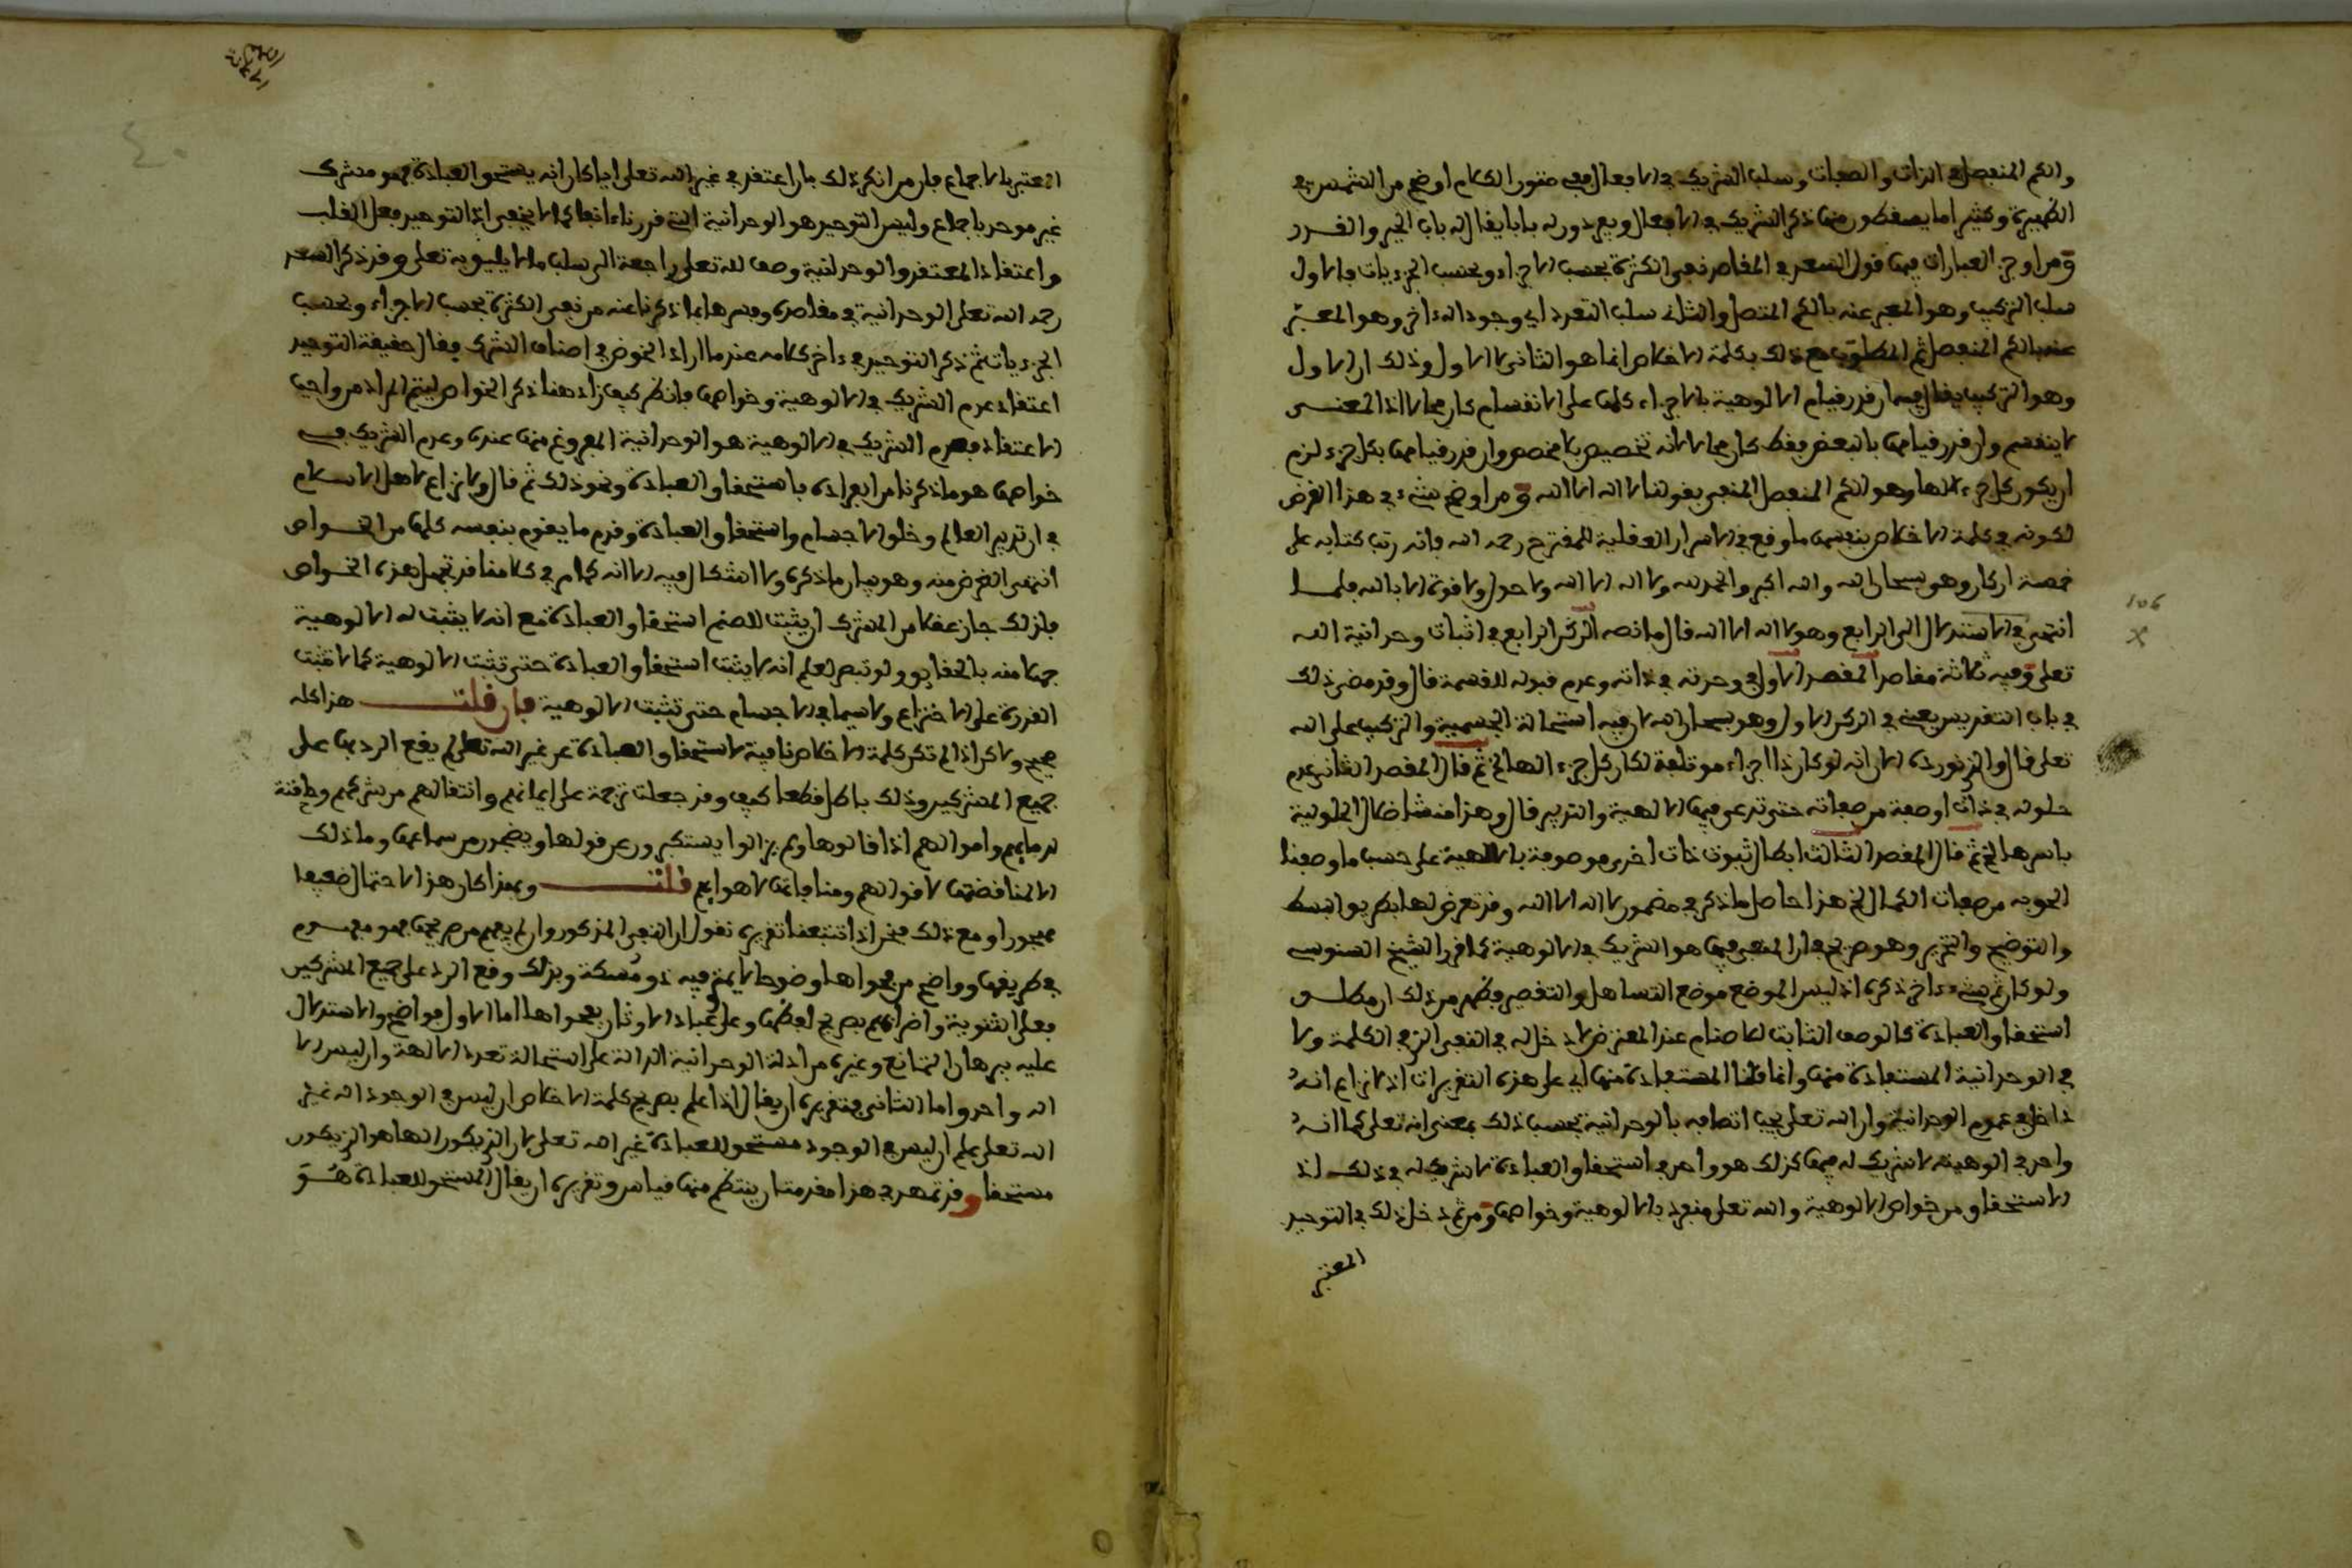 والكم المنفصل في الذات والصفات وسلب الشريك في الافعال ففي متون الكلام اوضح من الشمس في
الظهيرة وكثيرا ما يسقطون منها ذكر الشريك في الافعال ويعدون له بابا يقال له باب الجبر والقدر
ومن اوجز العبارات فيها قول السعد في المقاصد نفي الكثرة بحسب الاجزاء وبحسب الجزءيات فالاول
سلب التركيب وهو المعبر عنه بالكم المتصل والثاني سلب التعدد اي وجود اله ءاخر وهو المعبر
عنه بالكم المنفصل ثم المطلوب مع ذلك بكلمة الاخلاص انما هو الثاني لا الاول وذلك ان الاول
وهو التركيب يقال فيه ان قدر قيام الالوهية بالاجزاء كلها على الانقسام كان محالا اذ المعنى
لا ينقسم وان قدر قيامها بالبعض فقط كان محالا لانه تخصيص بلا مخصص وان قدر قيامها بكل جزء لزم
ان يكون كل جزء الاها وهو الكم المنفصل المنفي بقولنا لا اله الا الله ومن اوضح شيء في هذا الغرض
لكونه في كلمة الاخلاص بنفسها ما وقع في الاسرار العقلية للمقترح رحمه الله فانه رتب كتابه على
خمسة اركان وهو سبحان الله والله اكبر والحمد لله ولا اله الا الله ولا حول ولا قوة الا بالله فلما
انتهى في الاستدلال الى الرابع وهو لا اله الا الله قال ما نصه الركن الرابع في اثبات وحدانية الله
تعلى وفيه ثلاثة مقاصد المقصد الاول في وحدته في ذاته وعدم قبوله للقسمة قال وقد مضى ذلك
في باب التقديس يعني في الركن الاول وهو سبحان الله لان فيه استحالة الجسمية والتركيب على الله
تعلى قال والذي نورده الان انه لو كان ذا اجزاء موتلفة لكان كل جزء الها الخ ثم قال المقصد الثاني عدم
حلوله في ذات او صفة من صفاته حتى تدعى فيها الالهية والتدبير قال وهذا منشا ضلال الحلولية
باسرها الخ ثم قال المقصد الثالث ابطال ثبوت ذات اخرى موصوفة بالالهية على حسب ما وصفنا
الحق به من صفات الكمال الخ هذا حاصل ما ذكر في مضمون لا اله الا الله وقد تعرض لها بطريق البسط
والتوضيح والتحرير وهو صريح في ان المنفي فيها هو الشريك في الالوهية كما قرر الشيخ السنوسي
ولو كان ثم شيء ءاخر ذكره اذ ليس الموضع موضع التساهل والتقصير فظهر من ذلك ان مطلق
استحقاق العبادة كالوصف الثابت للاصنام عند المعترض لا دخل له في النفي الذي في الكلمة ولا
في الوحدانية المستفادة منها وانما قلنا المستفادة منها اي على هذه التقديرات اذ لا نزاع انه
داخل في عموم الوحدانية وان الله تعلى يجب اتصافه بالوحدانية بحسب ذلك بمعنى انه تعلى كما انه
واحد في الوهيته لا شريك له فيها كذلك هو واحد في استحقاق العبادة لا شريك له في ذلك اذ
الاستحقاق من خواص الالوهية والله تعلى منفرد بالالوهية وخواصها ومن ثم دخل ذلك في التوحيد
المعتبر
المعتبر بالاجماع فان من انكر ذلك بان اعتقد في غير الله تعلى ايا كان انه يستحق العبادة فهو مشرك
غير موحد باجماع وليس التوحيد هو الوحدانية التي قررناه انفا كما لا يخفى اذ التوحيد فعل القلب
واعتقاد المعتقد والوحدانية وصف لله تعلى راجعة الى سلب ما لا يليق به تعلى وقد ذكر السعد
رحمه الله تعلى الوحدانية في مقاصده وفسرها بما ذكرنا عنه من نفي الكثرة بحسب الاجزاء وبحسب
الجزءيات ثم ذكر التوحيد في ءاخر كلامه عند ما اراد الخوض في اصناف الشرك فقال حقيقة التوحيد
اعتقاد عدم الشريك في الالوهية وخواصها فانظر كيف زاد هنا ذكر الخواص ليتم المراد من واجب
الاعتقاد فعدم الشريك في الالوهية هو الوحدانية المفروغ منها عنده وعدم الشريك في
خواصها هو ما ذكرنا من ايراده باستحقاق العبادة ونحو ذلك ثم قال ولا نزاع لاهل الاسلام
في ان تدبير العالم وخلق الاجسام واستحقاق العبادة وقدم ما يقوم بنفسه كلها من الخواص
انتهى الغرض منه وهو بيان ما ذكره ولا اشكال فيه الا انه كلام في كلامنا قد تجهل هذه الخواص
فلذلك جاز عقلا من المشرك ان يثبت للصنم استحقاق العبادة مع انه لا يثبت له الالوهية
جهلا منه بالحقايق ولو تبصر لعلم انه لا يثبت استحقاق العبادة حتى تثبت الالوهية كما لا تثبت
القدرة على الاختراع ولا سيما في الاجسام حتى تثبت الالوهية فان قلت هذا كله
صحيح ولاكن اذا لم تكن كلمة الاخلاص نافية لاستحقاق العبادة عن غير الله تعلى لم يقع الرد بها على
جميع المشركين وذلك باطل قطعا كيف وقد جعلت ترجمة على ايمانهم وانتقالهم من شركهم وحاقنة
لدمايهم واموالهم اذا قالوها ولم يزالوا يستكبرون عن قولها ويضجرون من سماعها وما ذلك
الا لمناقضتها لاقوالهم ومنافاتها لاهوايهم قلت وبهذا كان هذا الاحتمال ضعيفا
مهجورا ومع ذلك فنحن اذا تتبعنا تقريره نقول ان النفي المذكور وان لم يفهم من صريحها فهو مفهوم
في طريقها وواضح من فحواها وضوحا لا يمتري فيه ذو مسكة وبذلك وقع الرد على جميع المشركين
فعلى الثنوية واضرابهم بصريح لفظها وعلى عباد الاوثان بفحواها اما الاول فواضح والاستدلال
عليه ببرهان التمانع وغيره من ادلة الوحدانية الدالة على استحالة تعدد الالهة وان ليس الا
اله واحد واما الثاني فتقريره ان يقال اذا علم بصريح كلمة الاخلاص ان ليس في الوجود اله غير
الله تعلى علم ان ليس في الوجود مستحق للعبادة غير الله تعلى لان الذي يكون الها هو الذي يكون
مستحقا وقد تمهد في هذا مقدمتان ينتظم منها قياس وتقريره ان يقال المستحق للعبادة هو
106